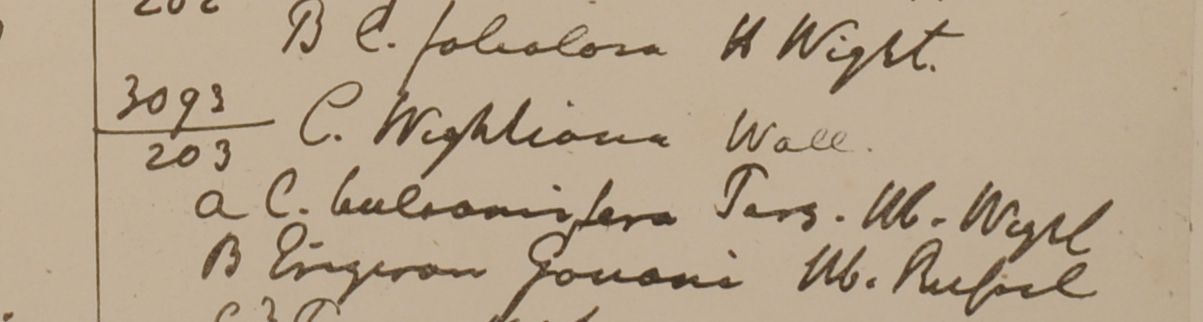 202
B C. foliolosa H Wight.
3093
203 C. Wightiana Wall.
a C. balsamifera Hb. Wight
B Erigeron Gouani Hb. Russel